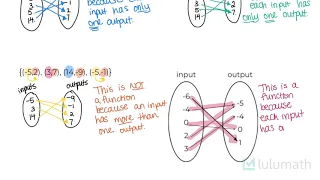 because
input
has only
one output.
each input
has only
one output.
-5
3
14.
1
2
7
2
7
{(-5,2), (3,7), (14,-9), (-5,-1)}
inputs
outputs
-5
3
14
-9
-1
2
7
This is NOT
a function
because an input
has more than
one output.
input
output
-6
-4
0
2
3
-5
-4
0
1
This is a
function
because
each input
has o
lulumath